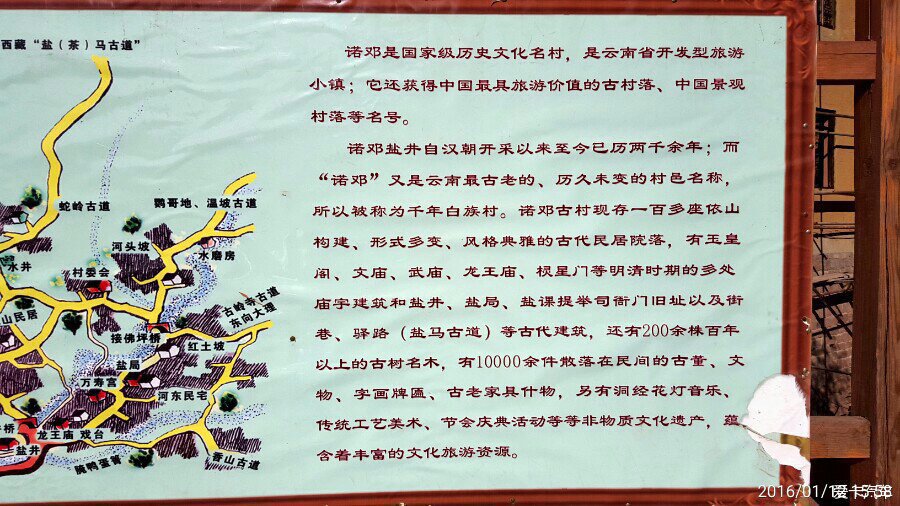 西藏“盐（茶）马古道”
蛇岭古道
鹦哥地、温坡古道
河头坡
水磨房
水井
村委会
古岭寺古道
东向大理
山民居
接佛坪桥
红土坡
盐局
万寿宫
河东民宅
桥
龙王庙 戏台
盐井
香山古道
诺邓是国家级历史文化名村，是云南省开发型旅游
小镇；它还获得中国最具旅游价值的古村落、中国景观
村落等名号。
诺邓盐井自汉朝开采以来至今已历两千余年；而
“诺邓”又是云南最古老的、历久未变的村邑名称，
所以被称为千年白族村。诺邓古村现存一百多座依山
构建、形式多变、风格典雅的古代民居院落，有玉皇
阁、文庙、武庙、龙王庙、棂星门等明清时期的多处
庙宇建筑和盐井、盐局、盐课提举司衙门旧址以及街
巷、驿路（盐马古道）等古代建筑，还有200余株百年
以上的古树名木，有10000余件散落在民间的古董、文
物、字画牌匾、古老家具什物，另有洞经花灯音乐、
传统工艺美术、节会庆典活动等等非物质文化遗产，蕴
含着丰富的文化旅游资源。
2016/01/1
15:58
爱卡汽车